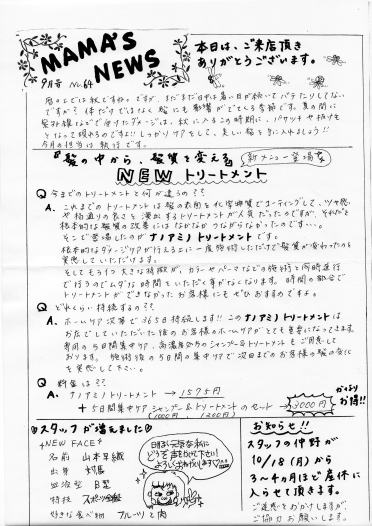 MAMA'S NEWS
9月号 No.64
本日は、ご来店頂き
ありがとうございます。
暦の上では秋ですね。ですが、まだまだ日中は暑い日が続いてバテたりしてない
ですか？体だけではなく髪にも影響がでてくる季節です。夏の間に
紫外線などで受けたダメージは、秋に入るこの時期に、パサツキや抜け毛
となって現れるのです!!しっかりケアをして、美しい髪を手に入れましょう!!
今月の担当は 執行です。
『髪の中から、髪質を変える』
新メニュー登場
NEW トリートメント
Q 今までのトリートメントと何が違うの？？
A. これまでのトリートメントは髪の表面を化学物質でコーティングして、ツヤ感
や指通りの良さを演出するトリートメントが人気だったのですが、それだと
根本的な髪質の改善にはなかなかつながらなかったのです…。
そこで登場したのがナノアミノトリートメントです。
根本的なダメージケアが行えるうえに一度施術しただけで髪質が変わったのを
実感していただけます。
そしてもう1つ大きな特徴が、カラーやパーマなどの施術と同時進行
で行うのでムダな時間をいただく事がなくなります。時間の都合で
トリートメントができなかったお客様にもぜひおすすめですよ。
Q どれくらい持続するの？
A. ホームケア次第で365日持続します!!このナノアミノトリートメントは
お店でしていただいた後のお客様のホームケアがとても重要になってきます。
専用の5日間集中ケア、高濃度処方のシャンプー&トリートメントもご用意して
おります。施術後の5日間の集中ケアで次回までのお客様の髪の変化
を実感して下さい。
Q 料金は？？
A. ナノアミノトリートメント → 1575円
+ 5日間集中ケア シャンプー&トリートメントのセット → 3000円
(1000円 1200円)
かなり
お得!!
スタッフが増えました
NEW FACE
名前 山本早織
出身
血液型 B型
特技 スポーツ全般
好きな食べ物 フルーツと肉
明るく元気な私に
どうぞ声をかけて下さい!
よろしくお願いします
お知らせ!!
スタッフの仲野が
10/18(月)から
3〜4ヵ月ほど産休に
入らせて頂きます。
ご迷惑をおかけしますが、
ご協力お願いします。